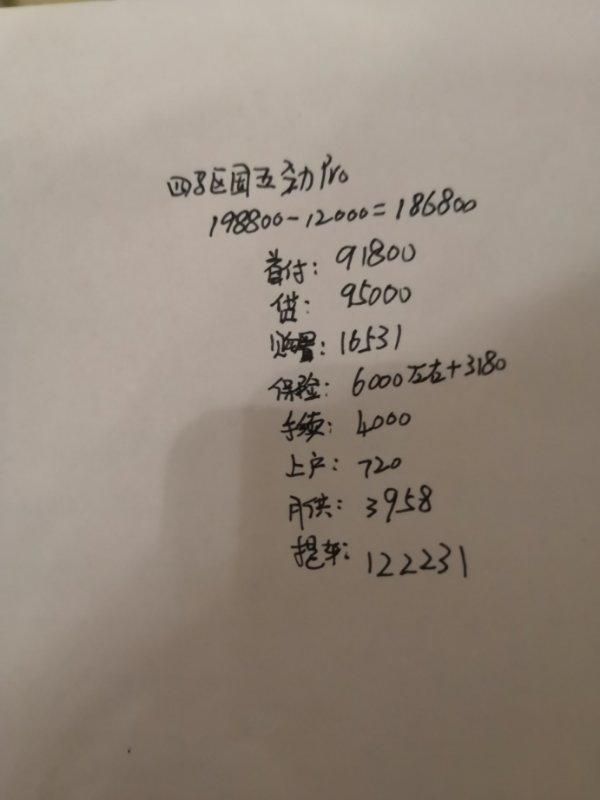 四驱国五劲Pro
198800-12000=186800
首付: 91800
贷: 95000
购置: 16531
保险: 6000左右+3180
手续: 4000
上户: 720
月供: 3958
提车: 122231